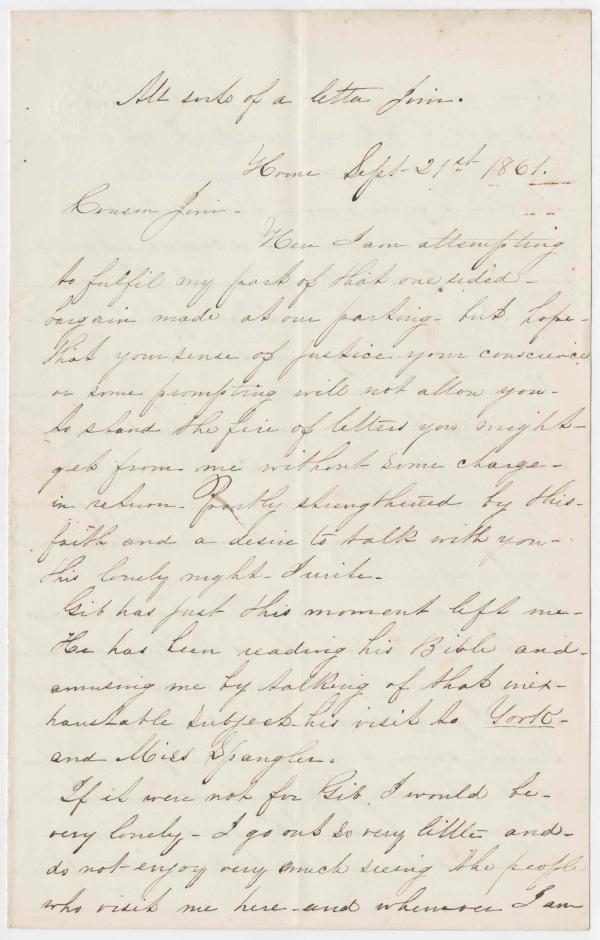 All sorts of a letter Jim.
Home Sept- 21st 1861.
Cousin Jim-
Here I am attempting
to fulfil my part of that one sided-
bargain made at our parting- but hope-
that your sense of justice your conscience
or some prompting will not allow you-
to stand the fire of letters you might-
get from me without some charge-
in return- Partly strengthened by this-
faith and a desire to talk with you-
this lonely night- I write-
Gib has just this moment left me-
He has been reading his Bible and-
amusing me by talking of that inex-
haustable subject- his visit to York-
and Miss Spangler.
If it were not for Gib I would be-
very lonely- I go out so very little and-
do not enjoy very much seeing the people
who visit me here- and whenever I am